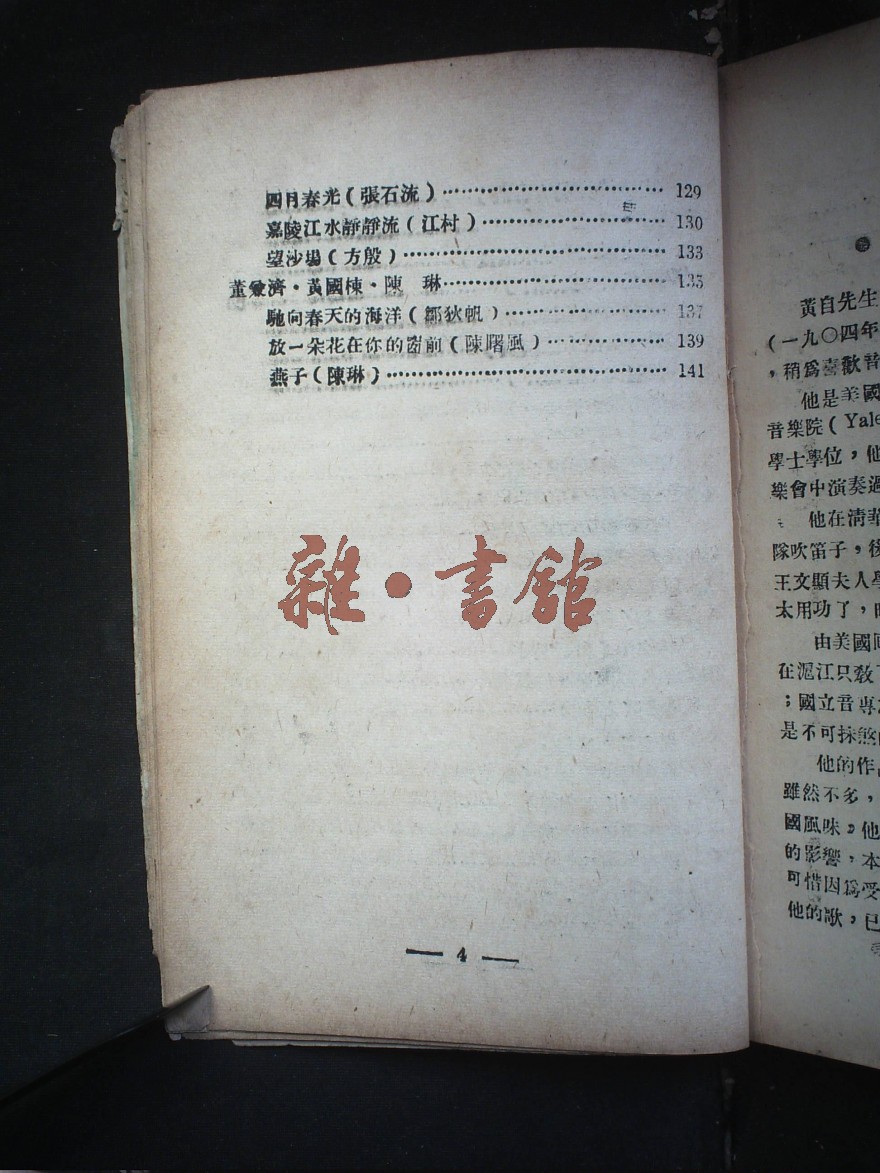 四月春光(張石流)……………………… 129
嘉陵江水靜靜流(江村)……………………… 130
望沙場(方殷)……………………… 133
董愛濟·黃國棟·陳 琳……………………… 135
馳向春天的海洋(鄒狄帆)……………………… 137
放一朵花在你的窗前(陳曙風)……………………… 139
燕子(陳琳)……………………… 141
雜·書館
— 4 —
黃自先生
(一九〇四年
,稍爲喜歡音
他是美國
音樂院(Yale
學士學位,他
樂會中演奏過
他在清華
隊吹笛子,後
王文顯夫人學
太用功了,
由美國回
在滬江只敎
;國立音專
是不可抹煞
他的作
雖然不多,
國風味。他
的影響,本
可惜因爲受
他的歌,已